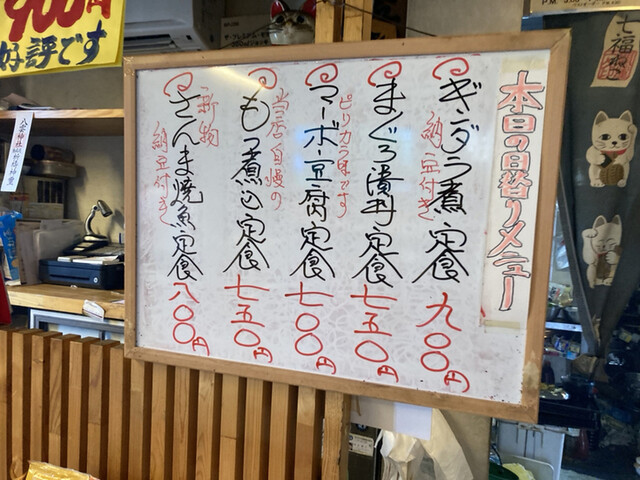 本日の日替りメニュー
ギンダラ煮定食 九〇〇円
納豆付き
まぐろ漬丼定食 七五〇円
ピリカラ味です
マーボー豆腐定食 七〇〇円
当店自慢の
もつ煮込定食 七五〇円
新物
さんま焼魚定食 八〇〇円
納豆付き
900円
好評です
七福